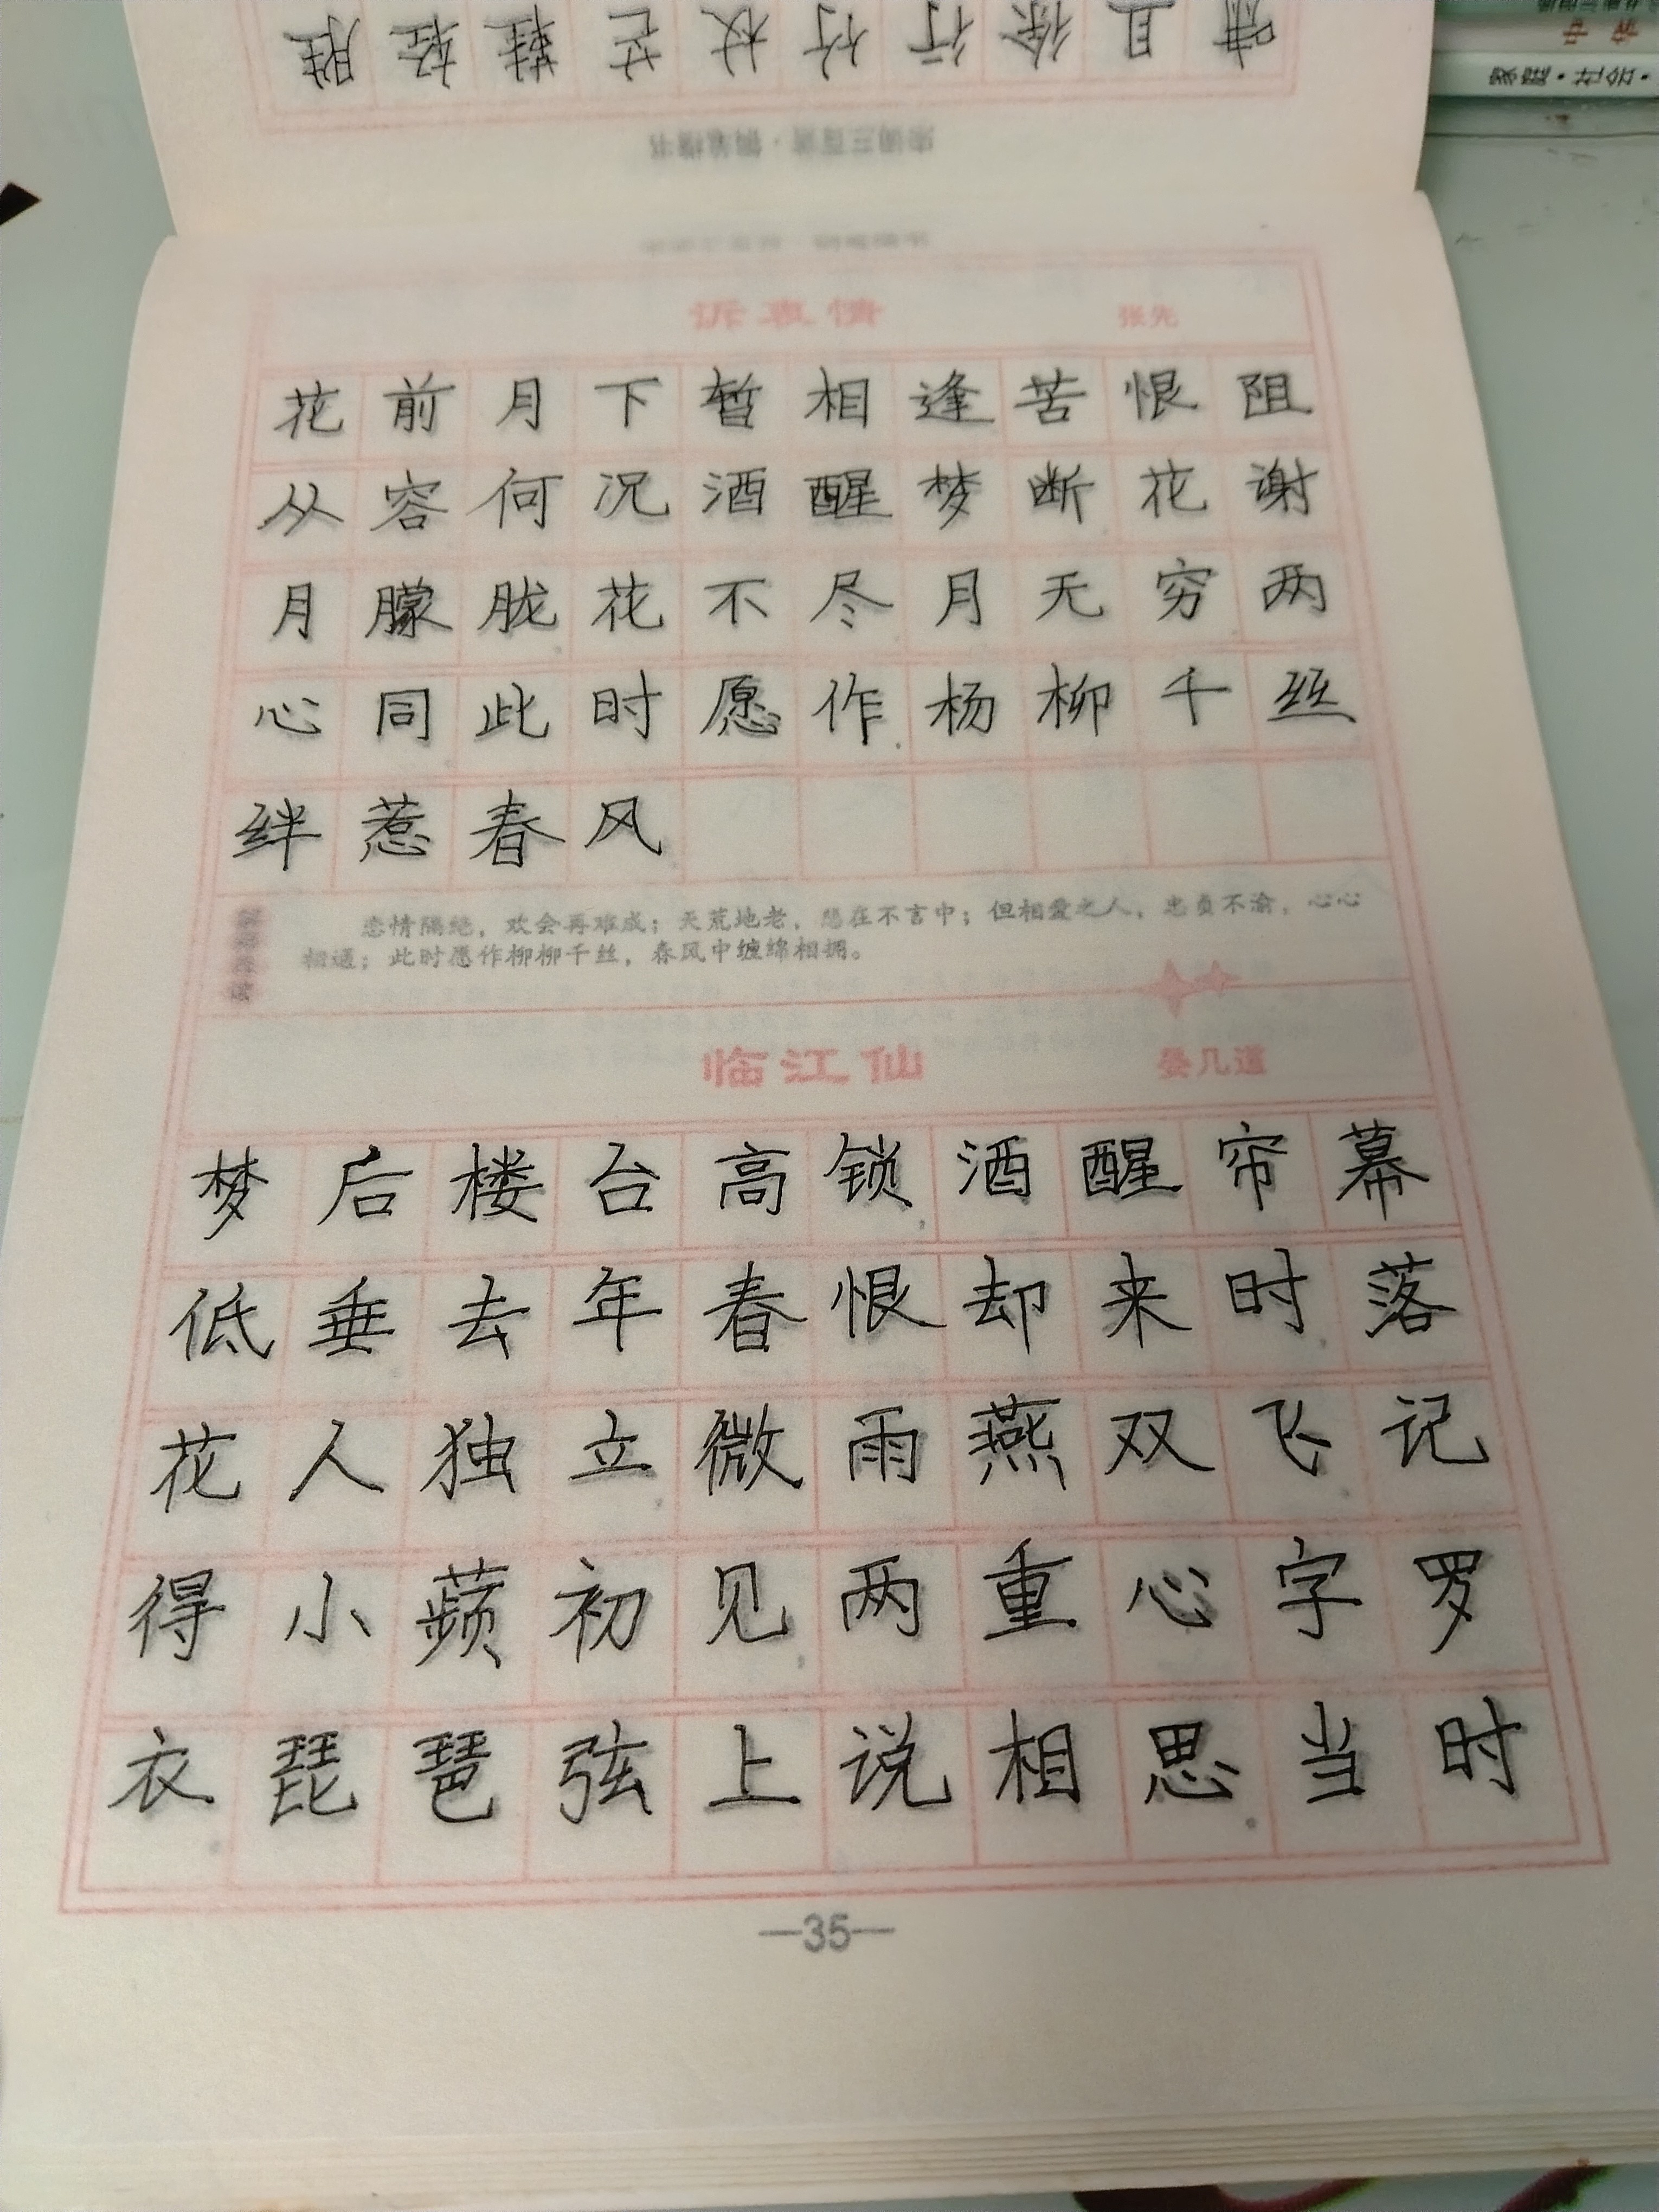 胜轻鞋芒杖竹行徐且啸
宋词三百首·钢笔楷书
家庭·社会·
诉衷情 张先
花前月下暂相逢苦恨阻
从容何况酒醒梦断花谢
月朦胧花不尽月无穷两
心同此时愿作杨柳千丝
绊惹春风
恋情隔绝，欢会再难成；天荒地老，愁在不言中；但相爱之人，忠贞不渝，心心
相通；此时愿作柳柳千丝，春风中缠绵相拥。
临江仙 晏几道
梦后楼台高锁酒醒帘幕
低垂去年春恨却来时落
花人独立微雨燕双飞记
得小蘋初见两重心字罗
衣琵琶弦上说相思当时
—35—